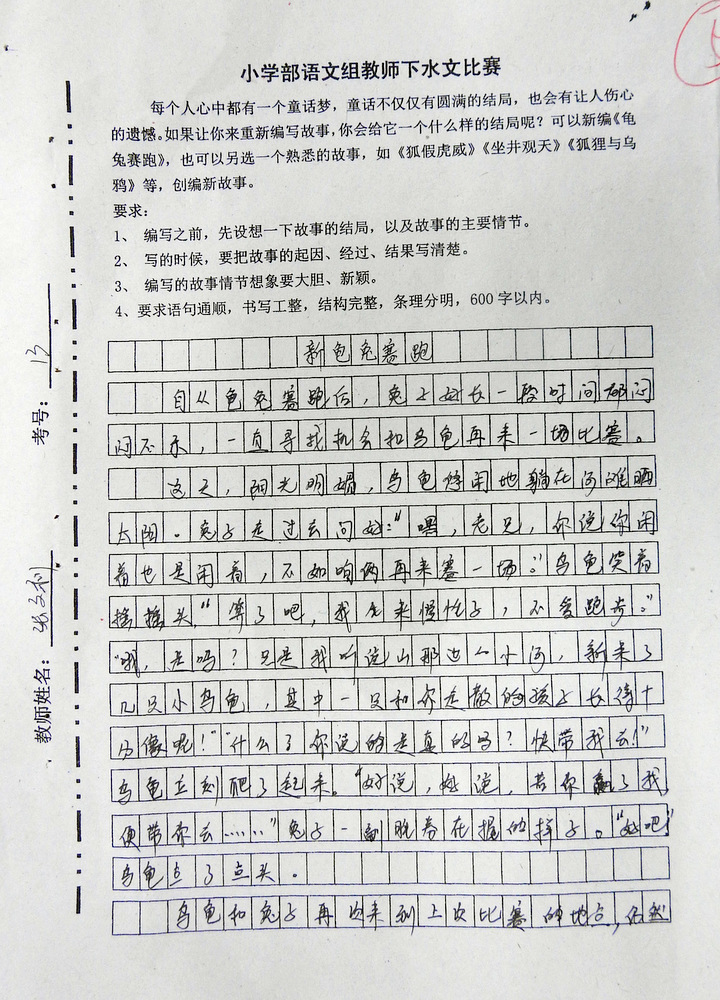 小学部语文组教师下水文比赛
每个人心中都有一个童话梦，童话不仅仅有圆满的结局，也会有让人伤心
的遗憾。如果让你来重新编写故事，你会给它一个什么样的结局呢？可以新编《龟
兔赛跑》，也可以另选一个熟悉的故事，如《狐假虎威》《坐井观天》《狐狸与乌
鸦》等，创编新故事。
要求：
1、 编写之前，先设想一下故事的结局，以及故事的主要情节。
2、 写的时候，要把故事的起因、经过、结果写清楚。
3、 编写的故事情节想象要大胆、新颖。
4、要求语句通顺，书写工整，结构完整，条理分明，600字以内。
新龟兔赛跑
自从龟兔赛跑后，兔子好长一段时间都闷
闷不乐，一直寻找机会和乌龟再来一场比赛。
这天，阳光明媚，乌龟悠闲地躺在河滩晒
太阳。兔子走过去问好：“嘿，老兄，你说你闲
着也是闲着，不如咱俩再来赛一场。”乌龟笑着
摇摇头，“算了吧，我生来慢性子，不爱跑步。”
“哦，是吗？只是我听说山那边一小河，新来了
几只小乌龟，其中一只和你走散的孩子长得十
分像呢！”“什么？你说的是真的吗？快带我去！”
乌龟立刻爬了起来。“好说，好说，若你赢了我，
便带你去……”兔子一副胜券在握的样子。“好吧！”
乌龟点了点头。
乌龟和兔子再次来到上次比赛的地点，依然
考号：13
教师姓名：